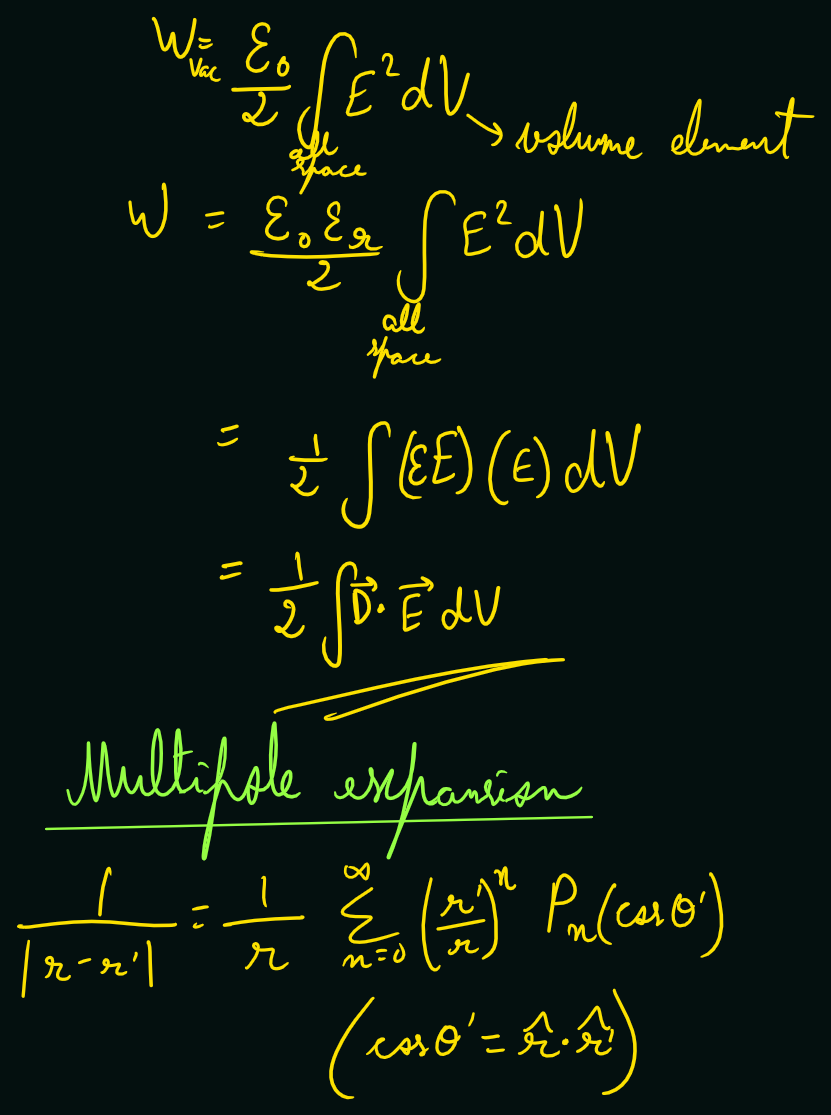 W_vac = ε₀/2 ∫_{all space} E² dV → volume element
W = ε₀εᵣ/2 ∫_{all space} E² dV
= 1/2 ∫ (εE) (E) dV
= 1/2 ∫ D⃗ · E⃗ dV
Multipole expansion
1/|r - r'| = 1/r ∑_{n=0}^{∞} (r'/r)ⁿ Pₙ(cos θ')
(cos θ' = r̂ · r̂')